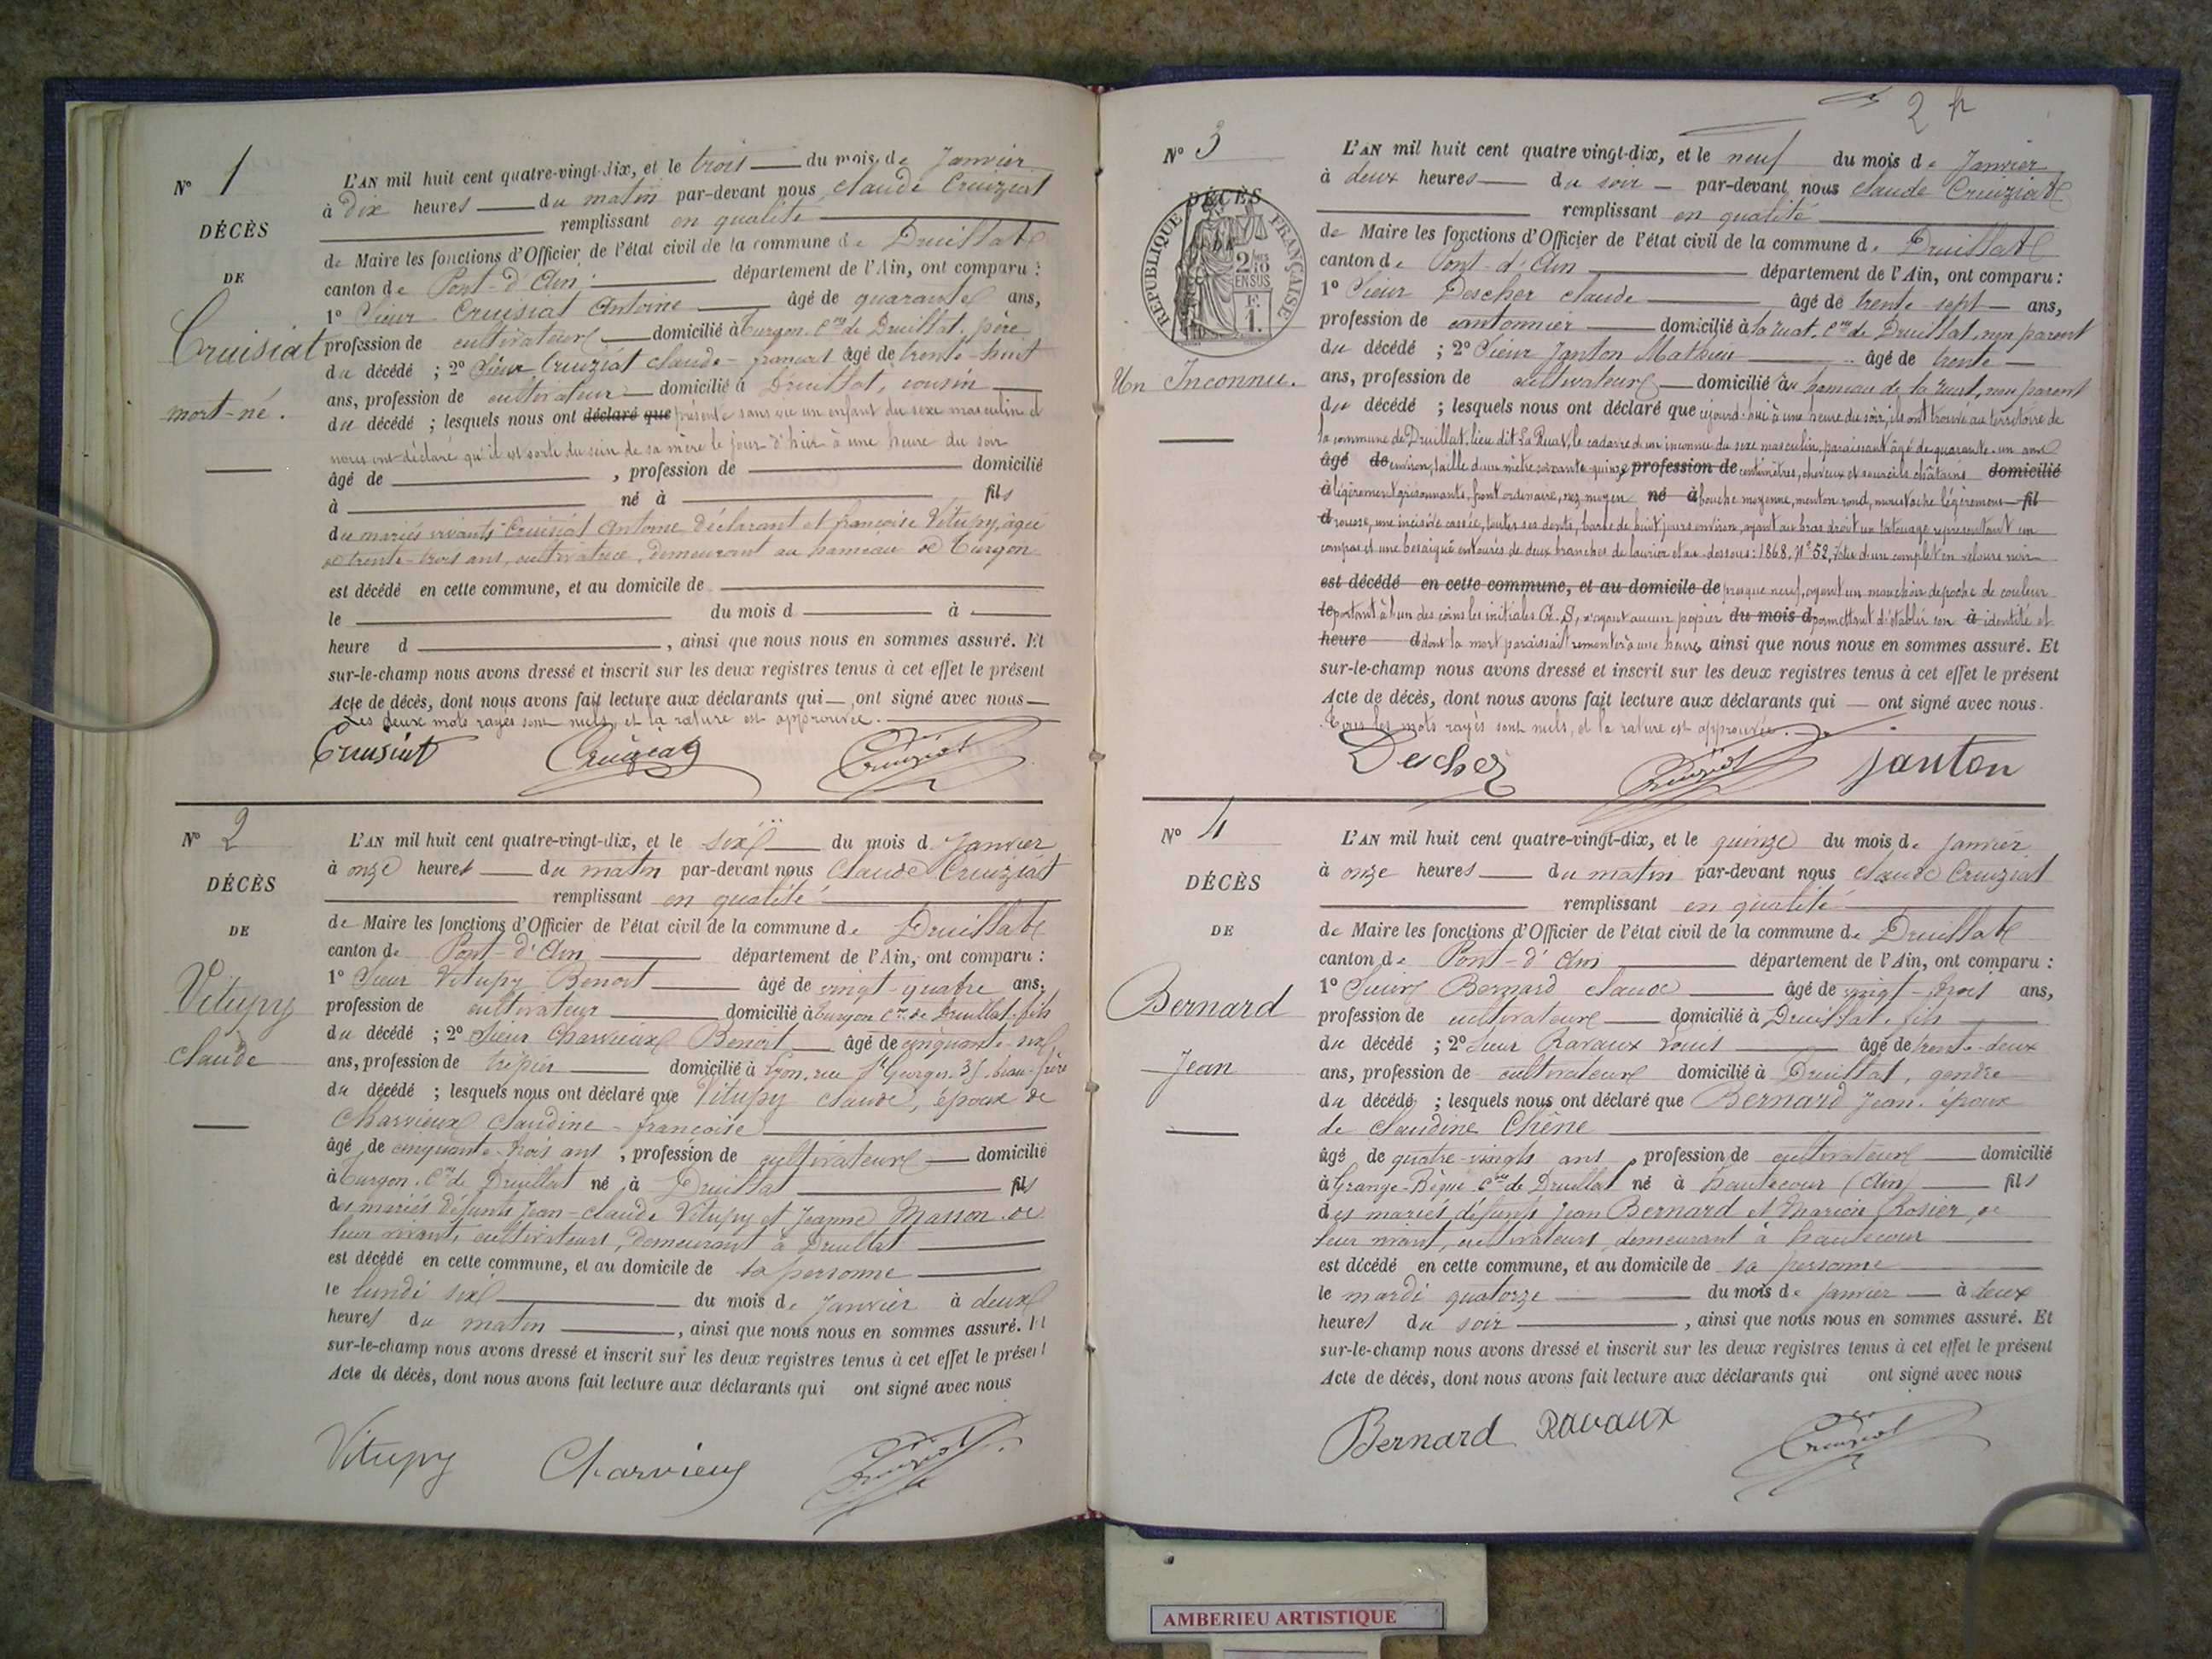 N° 1
DÉCÈS
DE
Cruisiat
mort-né.
L'AN mil huit cent quatre-vingt-dix, et le trois du mois de Janvier
à dix heures du matin par-devant nous Claude Cruiziat
remplissant en qualité
de Maire les fonctions d'Officier de l'état civil de la commune de Druillat
canton de Pont-d'Ain département de l'Ain, ont comparu :
1° Sieur Cruisiat Antoine âgé de quarante ans,
profession de cultivateur domicilié à Turgon Cne de Druillat, père
du décédé ; 2° Sieur Cruiziat Claude-françois âgé de trente-huit
ans, profession de cultivateur domicilié à Druillat, cousin
du décédé ; lesquels nous ont déclaré que présenté sans vie un enfant du sexe masculin et
nous ont déclaré qu'il est sorti du sein de sa mère le jour d'hier à une heure du soir
âgé de , profession de domicilié
à né à fils
du mariés vivants Cruisiat Antoine déclarant et françoise Vitupy, âgée
de trente-trois ans, cultivatrice, demeurant au hameau de Turgon
est décédé en cette commune, et au domicile de
le du mois d à
heure d , ainsi que nous nous en sommes assuré. Et
sur-le-champ nous avons dressé et inscrit sur les deux registres tenus à cet effet le présent
Acte de décès, dont nous avons fait lecture aux déclarants qui ont signé avec nous
Les deux mots rayés sont nuls, et la rature est approuvée.
Cruisiat Cruiziat Cruiziat
N° 2
DÉCÈS
DE
Vitupy
Claude
L'AN mil huit cent quatre-vingt-dix, et le six du mois d Janvier
à onze heures du matin par-devant nous Claude Cruiziat
remplissant en qualité
de Maire les fonctions d'Officier de l'état civil de la commune de Druillat
canton de Pont-d'Ain département de l'Ain, ont comparu :
1° Sieur Vitupy Benoit âgé de vingt-quatre ans,
profession de cultivateur domicilié à Turgon Cne de Druillat, fils
du décédé ; 2° Sieur Charvieux Benoit âgé de cinquante-six
ans, profession de tripier domicilié à Lyon, rue St Georges, 35, beau-frère
du décédé ; lesquels nous ont déclaré que Vitupy Claude, époux de
Charvieux Claudine-françoise
âgé de cinquante-trois ans , profession de cultivateur domicilié
à Turgon, Cne de Druillat né à Druillat fils
des mariés défunts Jean-Claude Vitupy et Jeanne Masson de
leur vivant, cultivateurs, demeurant à Druillat
est décédé en cette commune, et au domicile de sa personne
le lundi six du mois de Janvier à deux
heures du matin , ainsi que nous nous en sommes assuré. Et
sur-le-champ nous avons dressé et inscrit sur les deux registres tenus à cet effet le présent
Acte de décès, dont nous avons fait lecture aux déclarants qui ont signé avec nous
Vitupy Charvieux Cruiziat
2
N° 3
DÉCÈS
DE
RÉPUBLIQUE FRANÇAISE
2/10 EN SUS
F. 1.
Un Inconnu.
L'AN mil huit cent quatre vingt-dix, et le neuf du mois de Janvier
à deux heures du soir par-devant nous Claude Cruiziat
remplissant en qualité
de Maire les fonctions d'Officier de l'état civil de la commune de Druillat
canton de Pont-d'Ain département de l'Ain, ont comparu :
1° Sieur Descher Claude âgé de trente-sept ans,
profession de cantonnier domicilié à la ruat, Cne de Druillat, non parent
du décédé ; 2° Sieur Janton Mathieu âgé de trente
ans, profession de cultivateur domicilié au hameau de la ruat, non parent
du décédé ; lesquels nous ont déclaré que cejourd'hui à une heure du soir, ils ont trouvé au territoire de
la commune de Druillat, lieu dit La Ruat, le cadavre d'un inconnu du sexe masculin, paraissant âgé de quarante-un ans
âgé de environ, taille d'un mètre soixante-quinze profession de centimètres, cheveux et sourcils châtains domicilié
à légèrement grisonnants, front ordinaire, nez moyen né à bouche moyenne, menton rond, moustache légèrement fil
d rousse, une incisive cassée, toutes ses dents, barbe de huit jours environ, ayant au bras droit un tatouage représentant un
compas et une besaiguë entourés de deux branches de laurier et au-dessous : 1868, N° 52, vêtu d'un complet en velours noir
est décédé en cette commune, et au domicile de presque neuf, ayant un mouchoir de poche de couleur
le portant à l'un des coins les initiales A. S, n'ayant aucun papier du mois d permettant d'établir son à identité et
heure d dont la mort paraissait remonter à une heure, ainsi que nous nous en sommes assuré. Et
sur-le-champ nous avons dressé et inscrit sur les deux registres tenus à cet effet le présent
Acte de décès, dont nous avons fait lecture aux déclarants qui ont signé avec nous.
Tous les mots rayés sont nuls, et la rature est approuvée.
Descher Cruiziat Janton
N° 4
DÉCÈS
DE
Bernard
Jean
L'AN mil huit cent quatre-vingt-dix, et le quinze du mois de Janvier
à onze heures du matin par-devant nous Claude Cruiziat
remplissant en qualité
de Maire les fonctions d'Officier de l'état civil de la commune de Druillat
canton de Pont-d'Ain département de l'Ain, ont comparu :
1° Sieur Bernard Claude âgé de vingt-trois ans,
profession de cultivateur domicilié à Druillat, fils
du décédé ; 2° Sieur Ravaux Louis âgé de trente-deux
ans, profession de cultivateur domicilié à Druillat, gendre
du décédé ; lesquels nous ont déclaré que Bernard Jean, époux
de Claudine Chêne
âgé de quatre-vingts ans , profession de cultivateur domicilié
à Grange-Bégue Cne de Druillat né à hautecour (Ain) fils
des mariés défunts Jean Bernard et Marion Rosier, de
leur vivant, cultivateurs demeurant à hautecour
est décédé en cette commune, et au domicile de sa personne
le mardi quatorze du mois de Janvier à deux
heures du soir , ainsi que nous nous en sommes assuré. Et
sur-le-champ nous avons dressé et inscrit sur les deux registres tenus à cet effet le présent
Acte de décès, dont nous avons fait lecture aux déclarants qui ont signé avec nous
Bernard Ravaux Cruiziat
AMBERIEU ARTISTIQUE